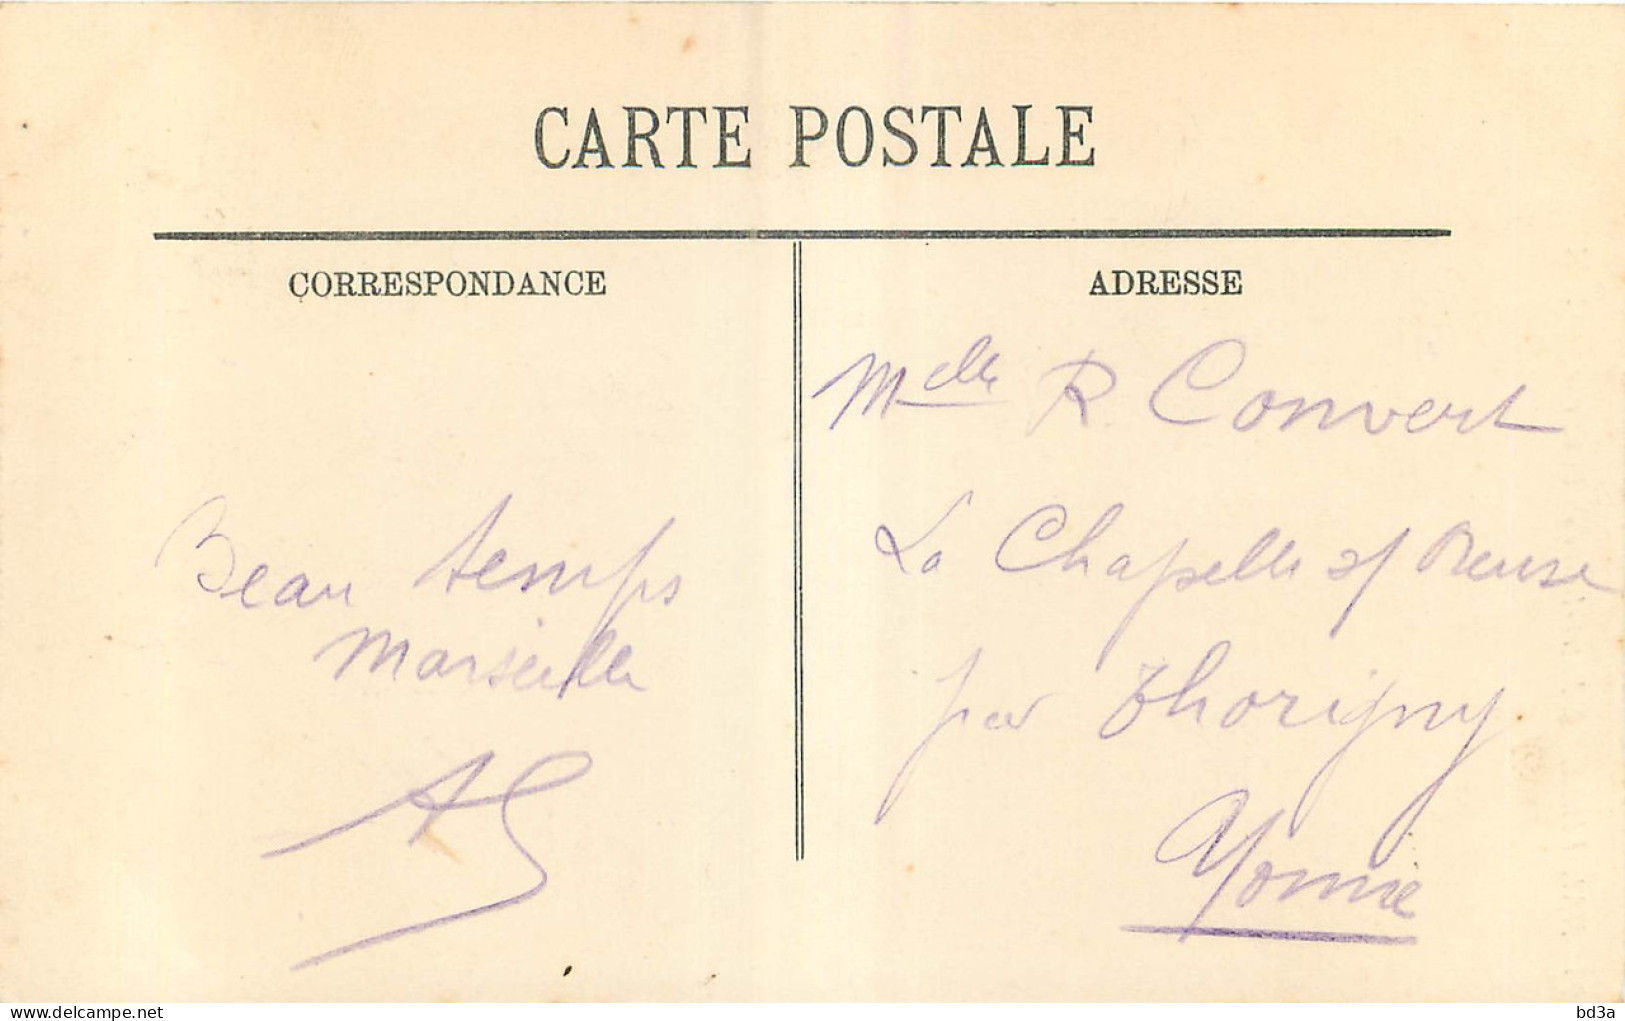 CARTE POSTALE
CORRESPONDANCE
Beau temps
Marseille
AS
ADRESSE
Melle R. Convert
La Chapelle s/ Oreuse
par Thorigny
Yonne
delcampe.net
bd3a